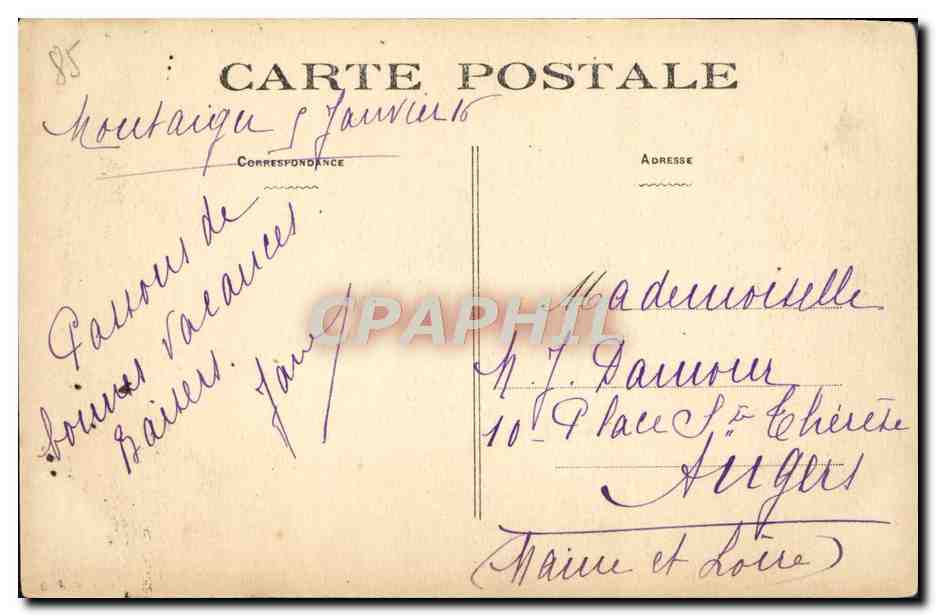 85
CARTE POSTALE
Montaigu 5 Janvier 16
CORRESPONDANCE
ADRESSE
Passons de
bonnes vacances
Baisers.
Mademoiselle
J. Damour
10 - Place Ste Thérèse
Angers
(Maine et Loire)
CPAPHIL